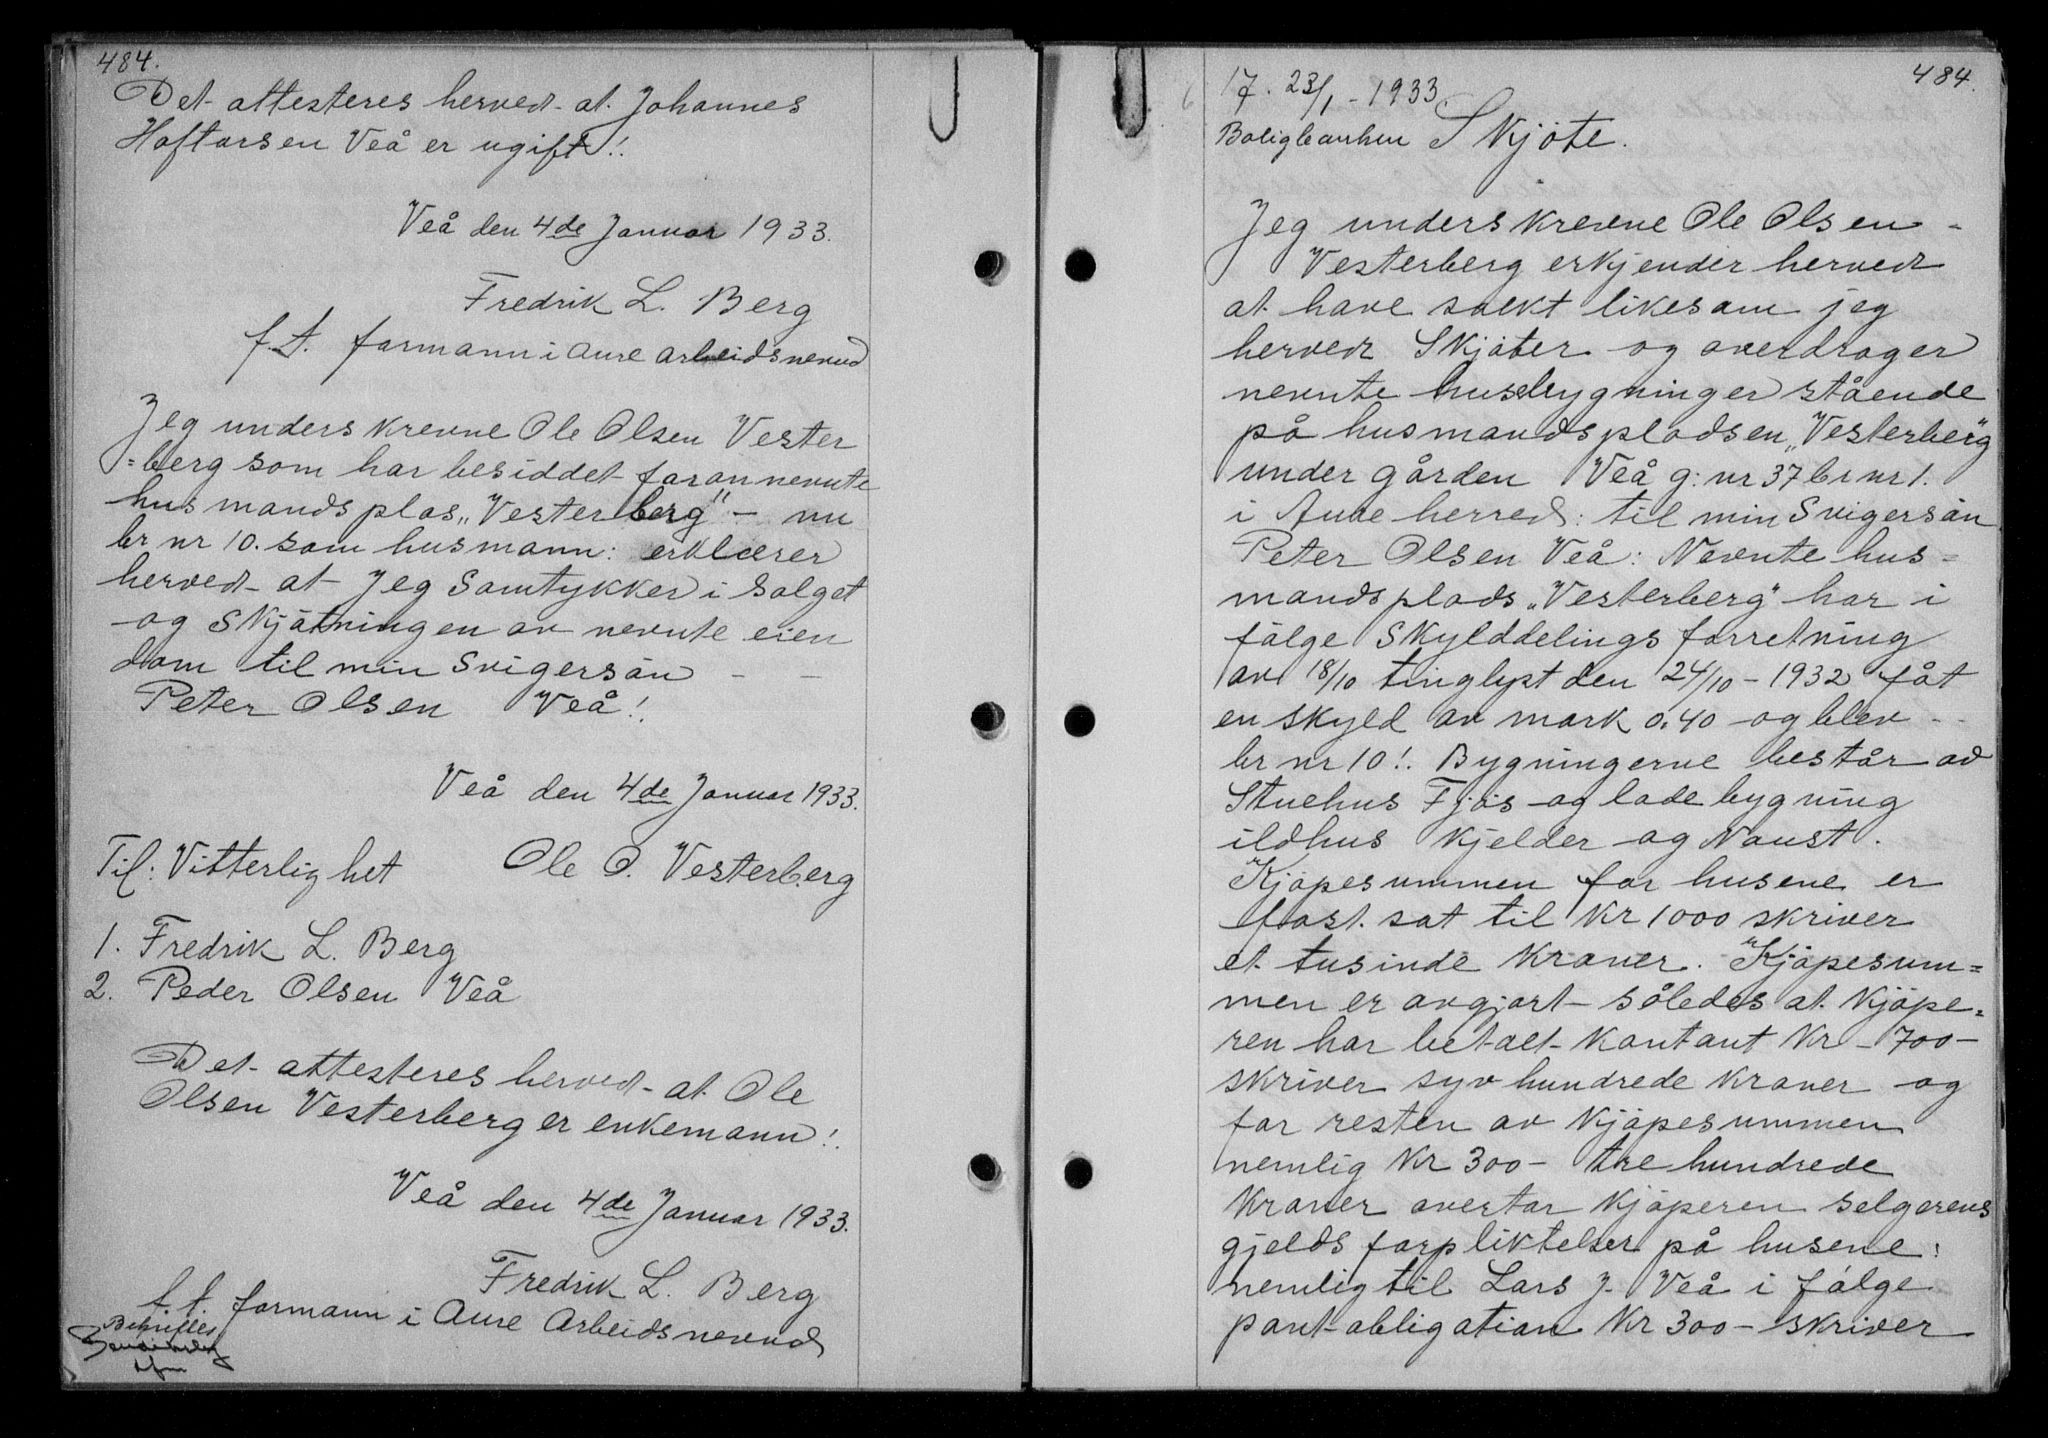 484.
Det attesteres herved at Johannes
Haftorsen Veå er ugift!.
Veå den 4de Januar 1933.
Fredrik L. Berg
f.t. formann i Aure arbeidsnevnd
Jeg underskrevne Ole Olsen Vester
=berg som har besiddet forannevnte
husmandsplas „Vesterberg" – nu
br nr 10. som husmann: erklærer
herved at Jeg Samtykker i Salget
og Skjötningen av nevnte eien
dom til min Svigersön – –
Peter Olsen Veå!.
Veå den 4de Januar 1933.
Til: Vitterlighet Ole O. Vesterberg
1. Fredrik L. Berg
2. Peder Olsen Veå
Det attesteres herved at Ole
Olsen Vesterberg er enkemann!.
Veå den 4de Januar 1933.
Fredrik L. Berg
f.t. formann i Aure Arbeidsnevnd
Bekreftes
484.
17. 23/1 - 1933
Boligbanken Skjöte.
Jeg underskrevne Ole Olsen -
Vesterberg erkjender herved
at have solkt likesom jeg
herved Skjöter og overdrager
nevnte husbygninger stående
på husmandspladsen „Vesterberg"
under gården Veå g: nr 37 br nr 1.
i Aure herred: til min Svigersön
Peter Olsen Veå: Nevnte hus=
mandsplads „Vesterberg" har i
fölge Skylddelingsforretning
av 18/10 tinglyst den 24/10 - 1932 fåt
en skyld av mark 0.40 og blev - -
br nr 10!. Bygningerne består av
Stuehus Fjös og lade bygning
ildhus kjelder og Naust.
Kjöpesummen for husene er
fast. sat til Kr 1000 skriver
et tusinde Kroner. Kjöpesum=
men er avgjort således at Kjöpe=
ren har betalt Kontant Kr - 700 -
skriver syv hundrede kroner og
for resten av Kjöpesummen
nemlig Kr 300 - tre hundrede
Kroner overtar Kjöperen selgerens
gjelds forpliktelser på husene:
nemlig til Lars J. Veå i fölge
pant-obligation Kr 300 - skriver